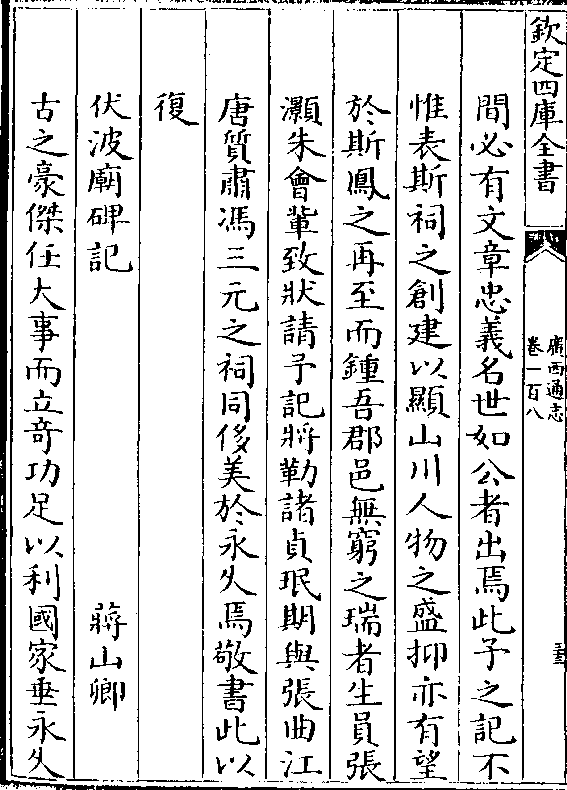 欽定四庫全書
廣西通志
卷一百八
間必有文章忠義名世如公者出焉此予之記不
惟表斯祠之創建以顯山川人物之盛抑亦有望
於斯鳳之再至而鍾吾郡邑無窮之瑞者生員張
灝朱會輩致狀請予記將勒諸貞珉期與張曲江
唐質肅馮三元之祠同侈美於永久焉敬書此以
復
伏波廟碑記　蔣山卿
古之豪傑任大事而立奇功足以利國家垂永久